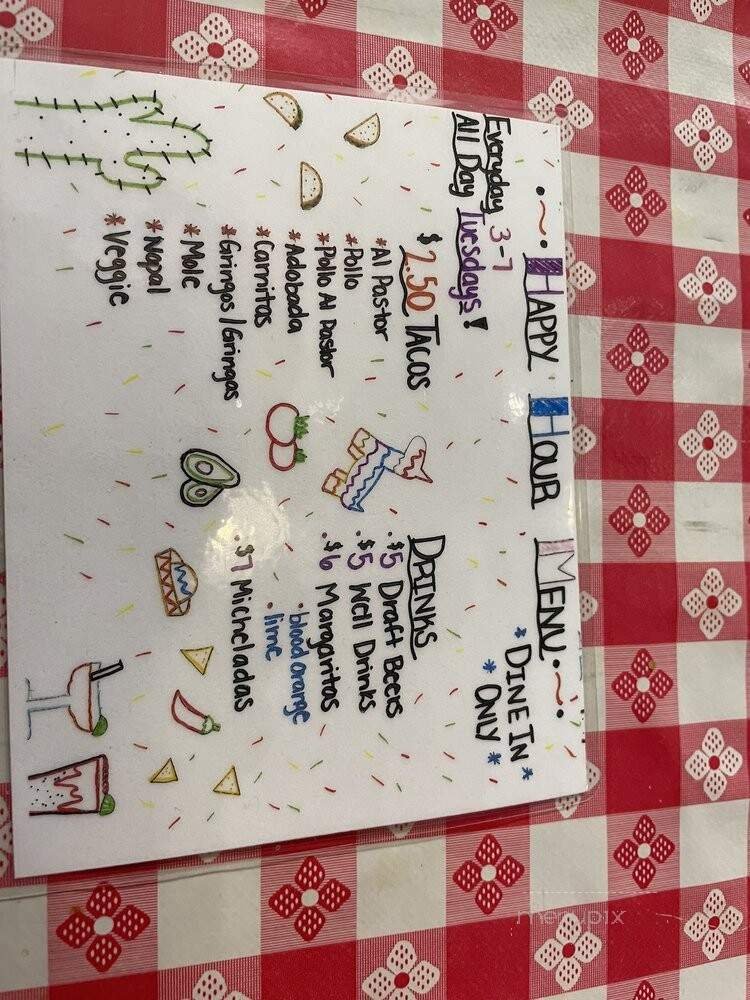 HAPPY HOUR MENU
* DINE IN *
* ONLY *
Everyday 3-7
All Day Tuesdays!
$2.50 TACOS
* Al Pastor
* Pollo
* Pollo Al Pastor
* Adobada
* Carnitas
* Gringos/Gringas
* Mole
* Nopal
* Veggie
DRINKS
. $5 Draft Beers
. $5 Well Drinks
. $6 Margaritas
. blood orange
. lime
. $7 Micheladas
menupix